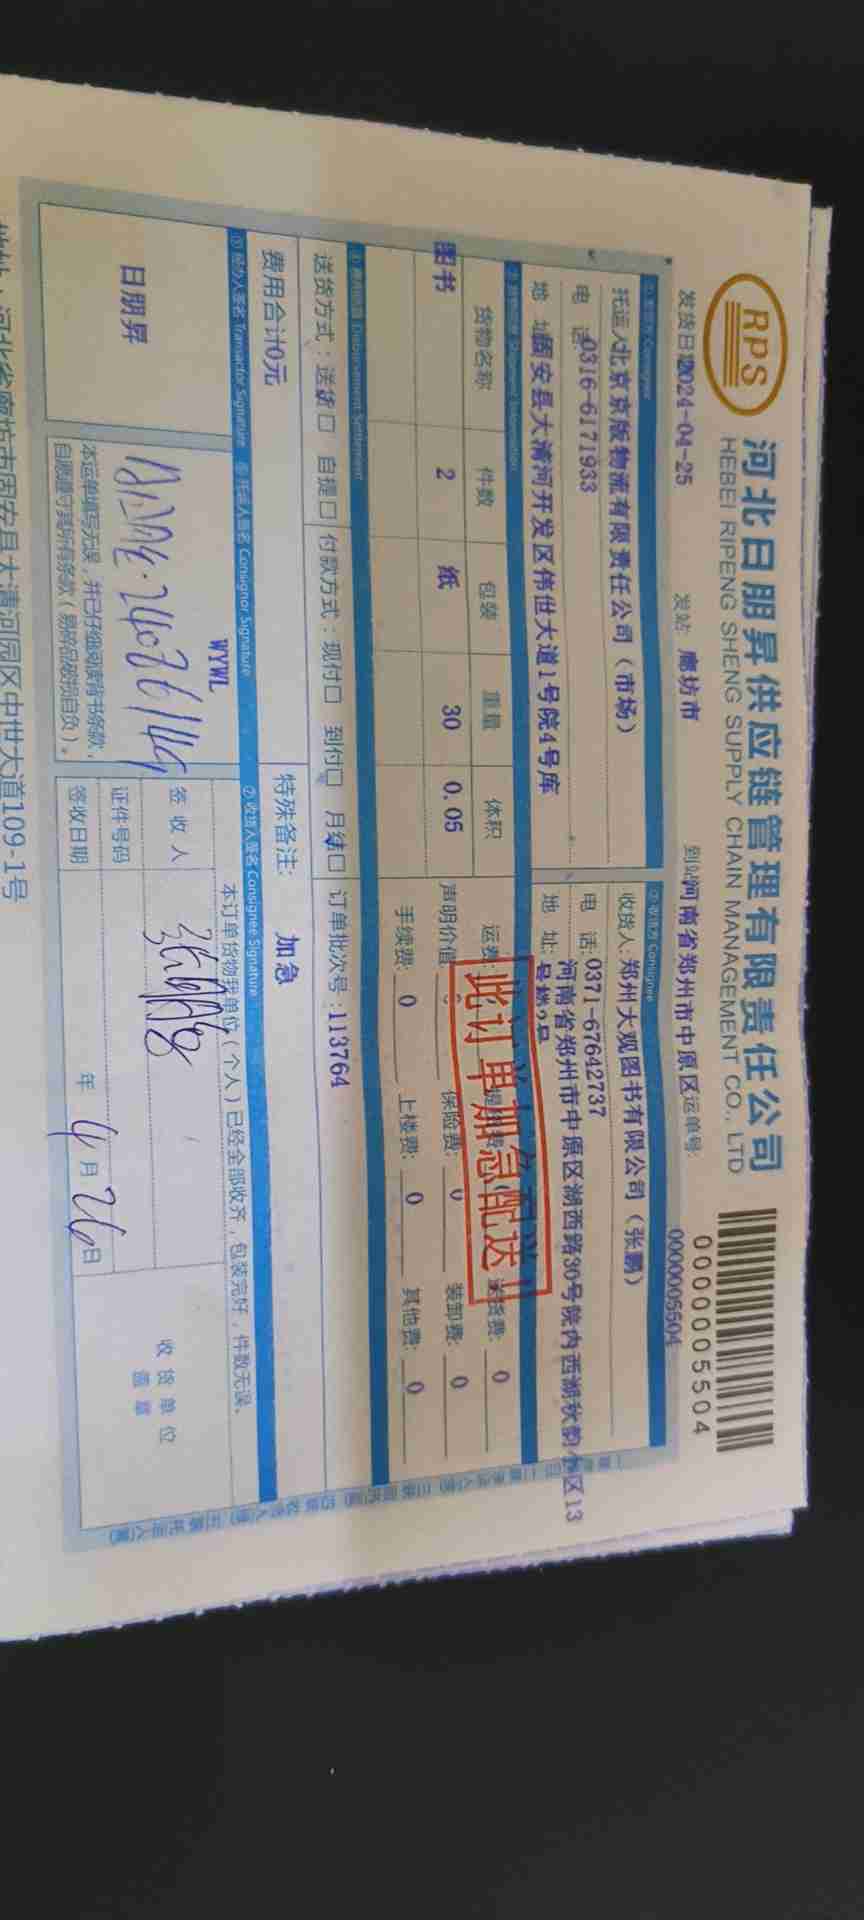 RPS
河北日朋昇供应链管理有限责任公司
HEBEI RIPENG SHENG SUPPLY CHAIN MANAGEMENT CO., LTD
0000005504
发货日期2024-04-25 发站: 廊坊市 到站河南省郑州市中原区运单号: 0000005504
托运人北京京版物流有限责任公司（市场）
电 话0316-6171933
地 址固安县大清河开发区伟世大道1号院4号库
② 收货方 Consignee
收货人: 郑州大观图书有限公司（张鹏）
电 话: 0371-67642737
地 址: 河南省郑州市中原区湖西路30号院内西湖秋韵小区13
号楼2号
货物名称 件数 包装 重量 体积
图书 2 纸 30 0.05
运费: 送货费: 0
声明价值: 保险费: 0 装卸费: 0
手续费: 0 上楼费: 0 其他费: 0
此订单加急配送!!
Disbursement Settlement
送货方式：送货□ 自提□ 付款方式：现付□ 到付□ 月结□ 订单批次号:113764
费用合计0元 特殊备注: 加急
⑤ 经办人签名 Transactor Signature ⑥ 托运人签名 Consignor Signature ⑦ 收货人签名 Consignee Signature
日朋昇
WYWL
本运单填写无误，并已仔细阅读背书条款，
自愿遵守其所有条款（易碎品破损自负）。
本订单货物我单位（个人）已经全部收齐，包装完好，件数无误。
签 收 人
证件号码
签收日期 年 4月26日
收货单位
盖章
地址：河北省廊坊市固安县大清河园区中世大道109-1号